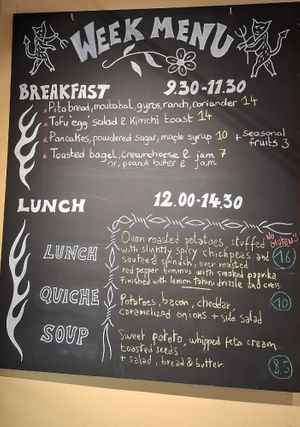 WEEK MENU
BREAKFAST 9.30-11.30
x Pita bread, moutabal, gyros, ranch, coriander 14
x Tofu "egg" salad & Kimchi toast 14
x Pancakes, powdered sugar, maple syrup 10 + seasonal fruits 3
x Toasted bagel, creamcheese & jam 7
or, peanut butter & jam
LUNCH 12.00-14.30
LUNCH
Oven roasted potatoes, stuffed
with slightly spicy chickpeas and
sauteed spinach, oven roasted
red pepper hummus with smoked paprika
Finished with lemon tahini drizzle and cress
NO GLUTEN!!
16
QUICHE
Potatoes, bacon, cheddar,
caramelized onions + side salad
10
SOUP
Sweet potato, whipped feta cream
toasted seeds
+ salad, bread & butter
8,5